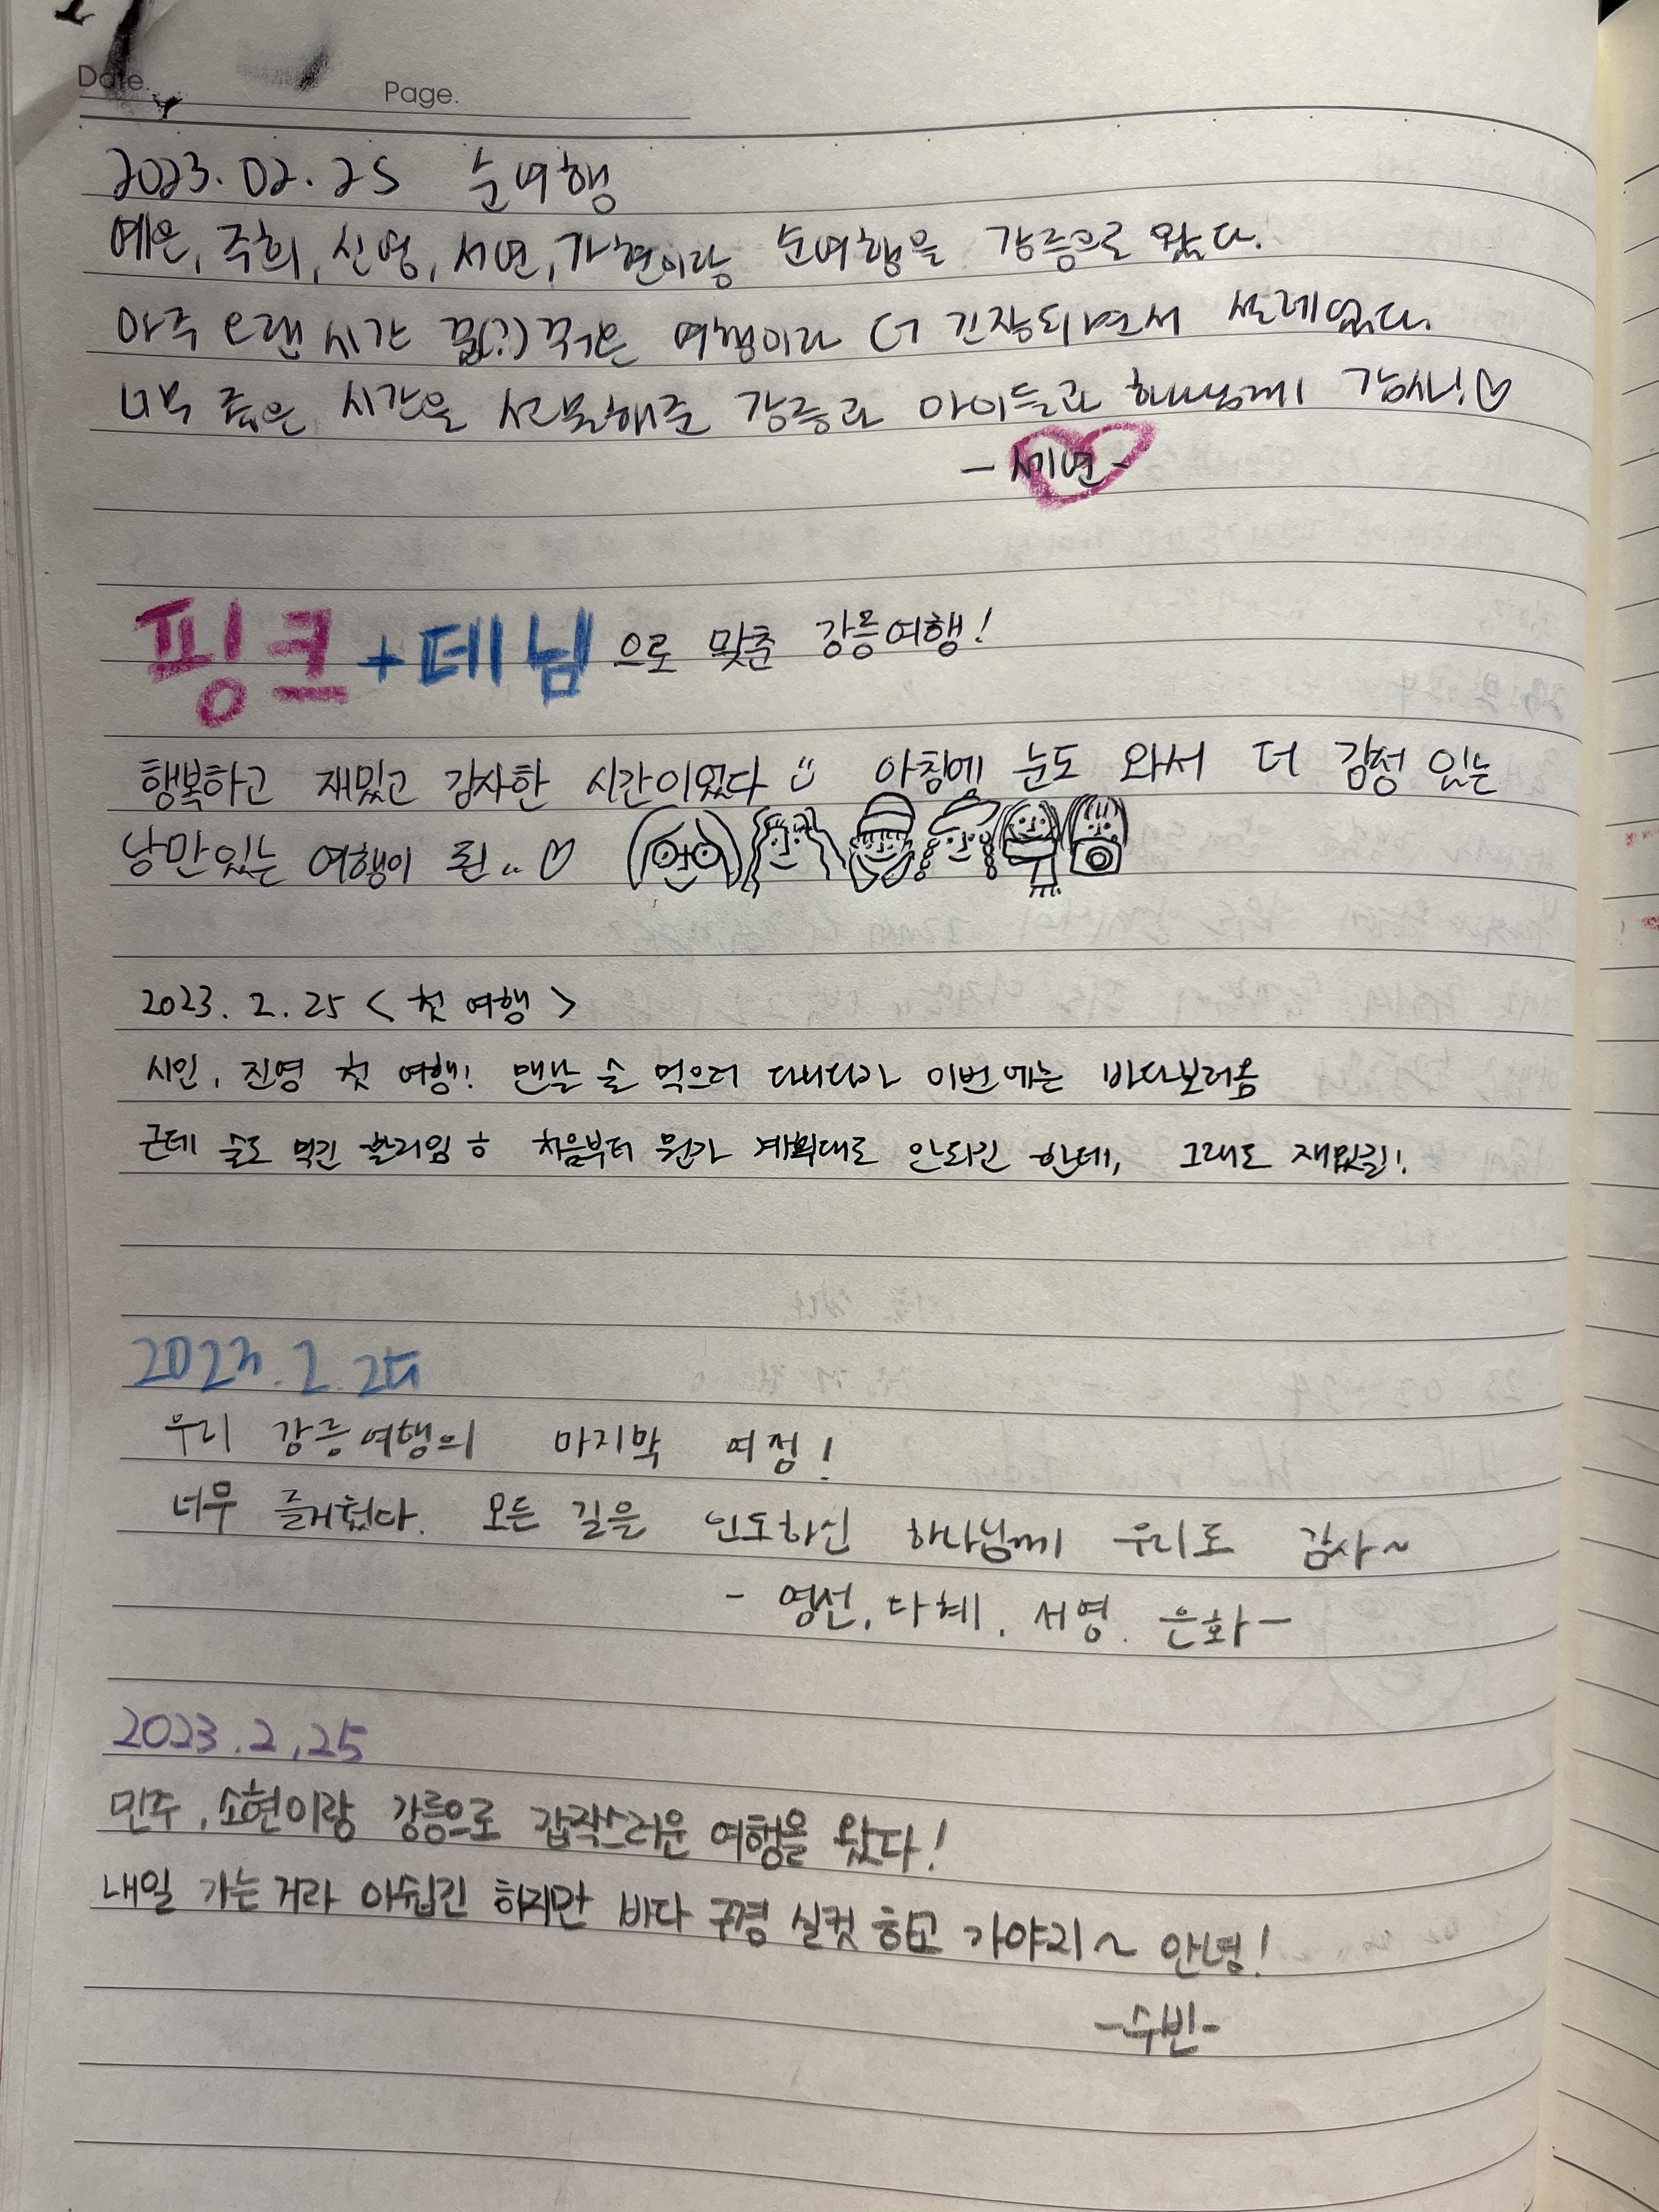 Date.
Page.
2023.02.25 순여행
예은, 주희, 신영, 서연, 가현이랑 순여행을 강릉으로 왔다.
아주 오랜 시간 꿈(?)꿔온 여행이라 더 긴장되면서 설레었다.
너무 좋은 시간을 선물해준 강릉과 아이들과 하나님께 감사!♡
- 세연 -
핑크+데님으로 맞춘 강릉여행!
행복하고 재밌고 감사한 시간이었다 아침에 눈도 와서 더 감정 있는
낭만있는 여행이 된..♡
2023. 2. 25 < 첫 여행 >
시인, 진영 첫 여행! 맨날 술 먹으러 다니다가 이번에는 바다보러옴
근데 술도 먹긴 할거임 ㅎ 처음부터 뭔가 계획대로 안되긴 한데, 그래도 재밌길!
2023. 2. 25
우리 강릉여행의 마지막 여정!
너무 즐거웠다. 모든 길을 인도하신 하나님께 우리도 감사~
- 영선, 다혜, 서영, 은화 -
2023.2.25
민주, 소현이랑 강릉으로 갑작스러운 여행을 왔다!
내일 가는거라 아쉽긴 하지만 바다 구경 실컷 하고 가야지~ 안녕!
-수빈-